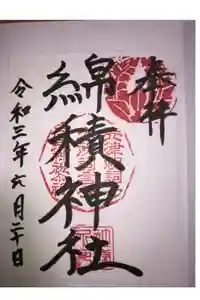 奉拝
綿積神社
令和三年六月二十日